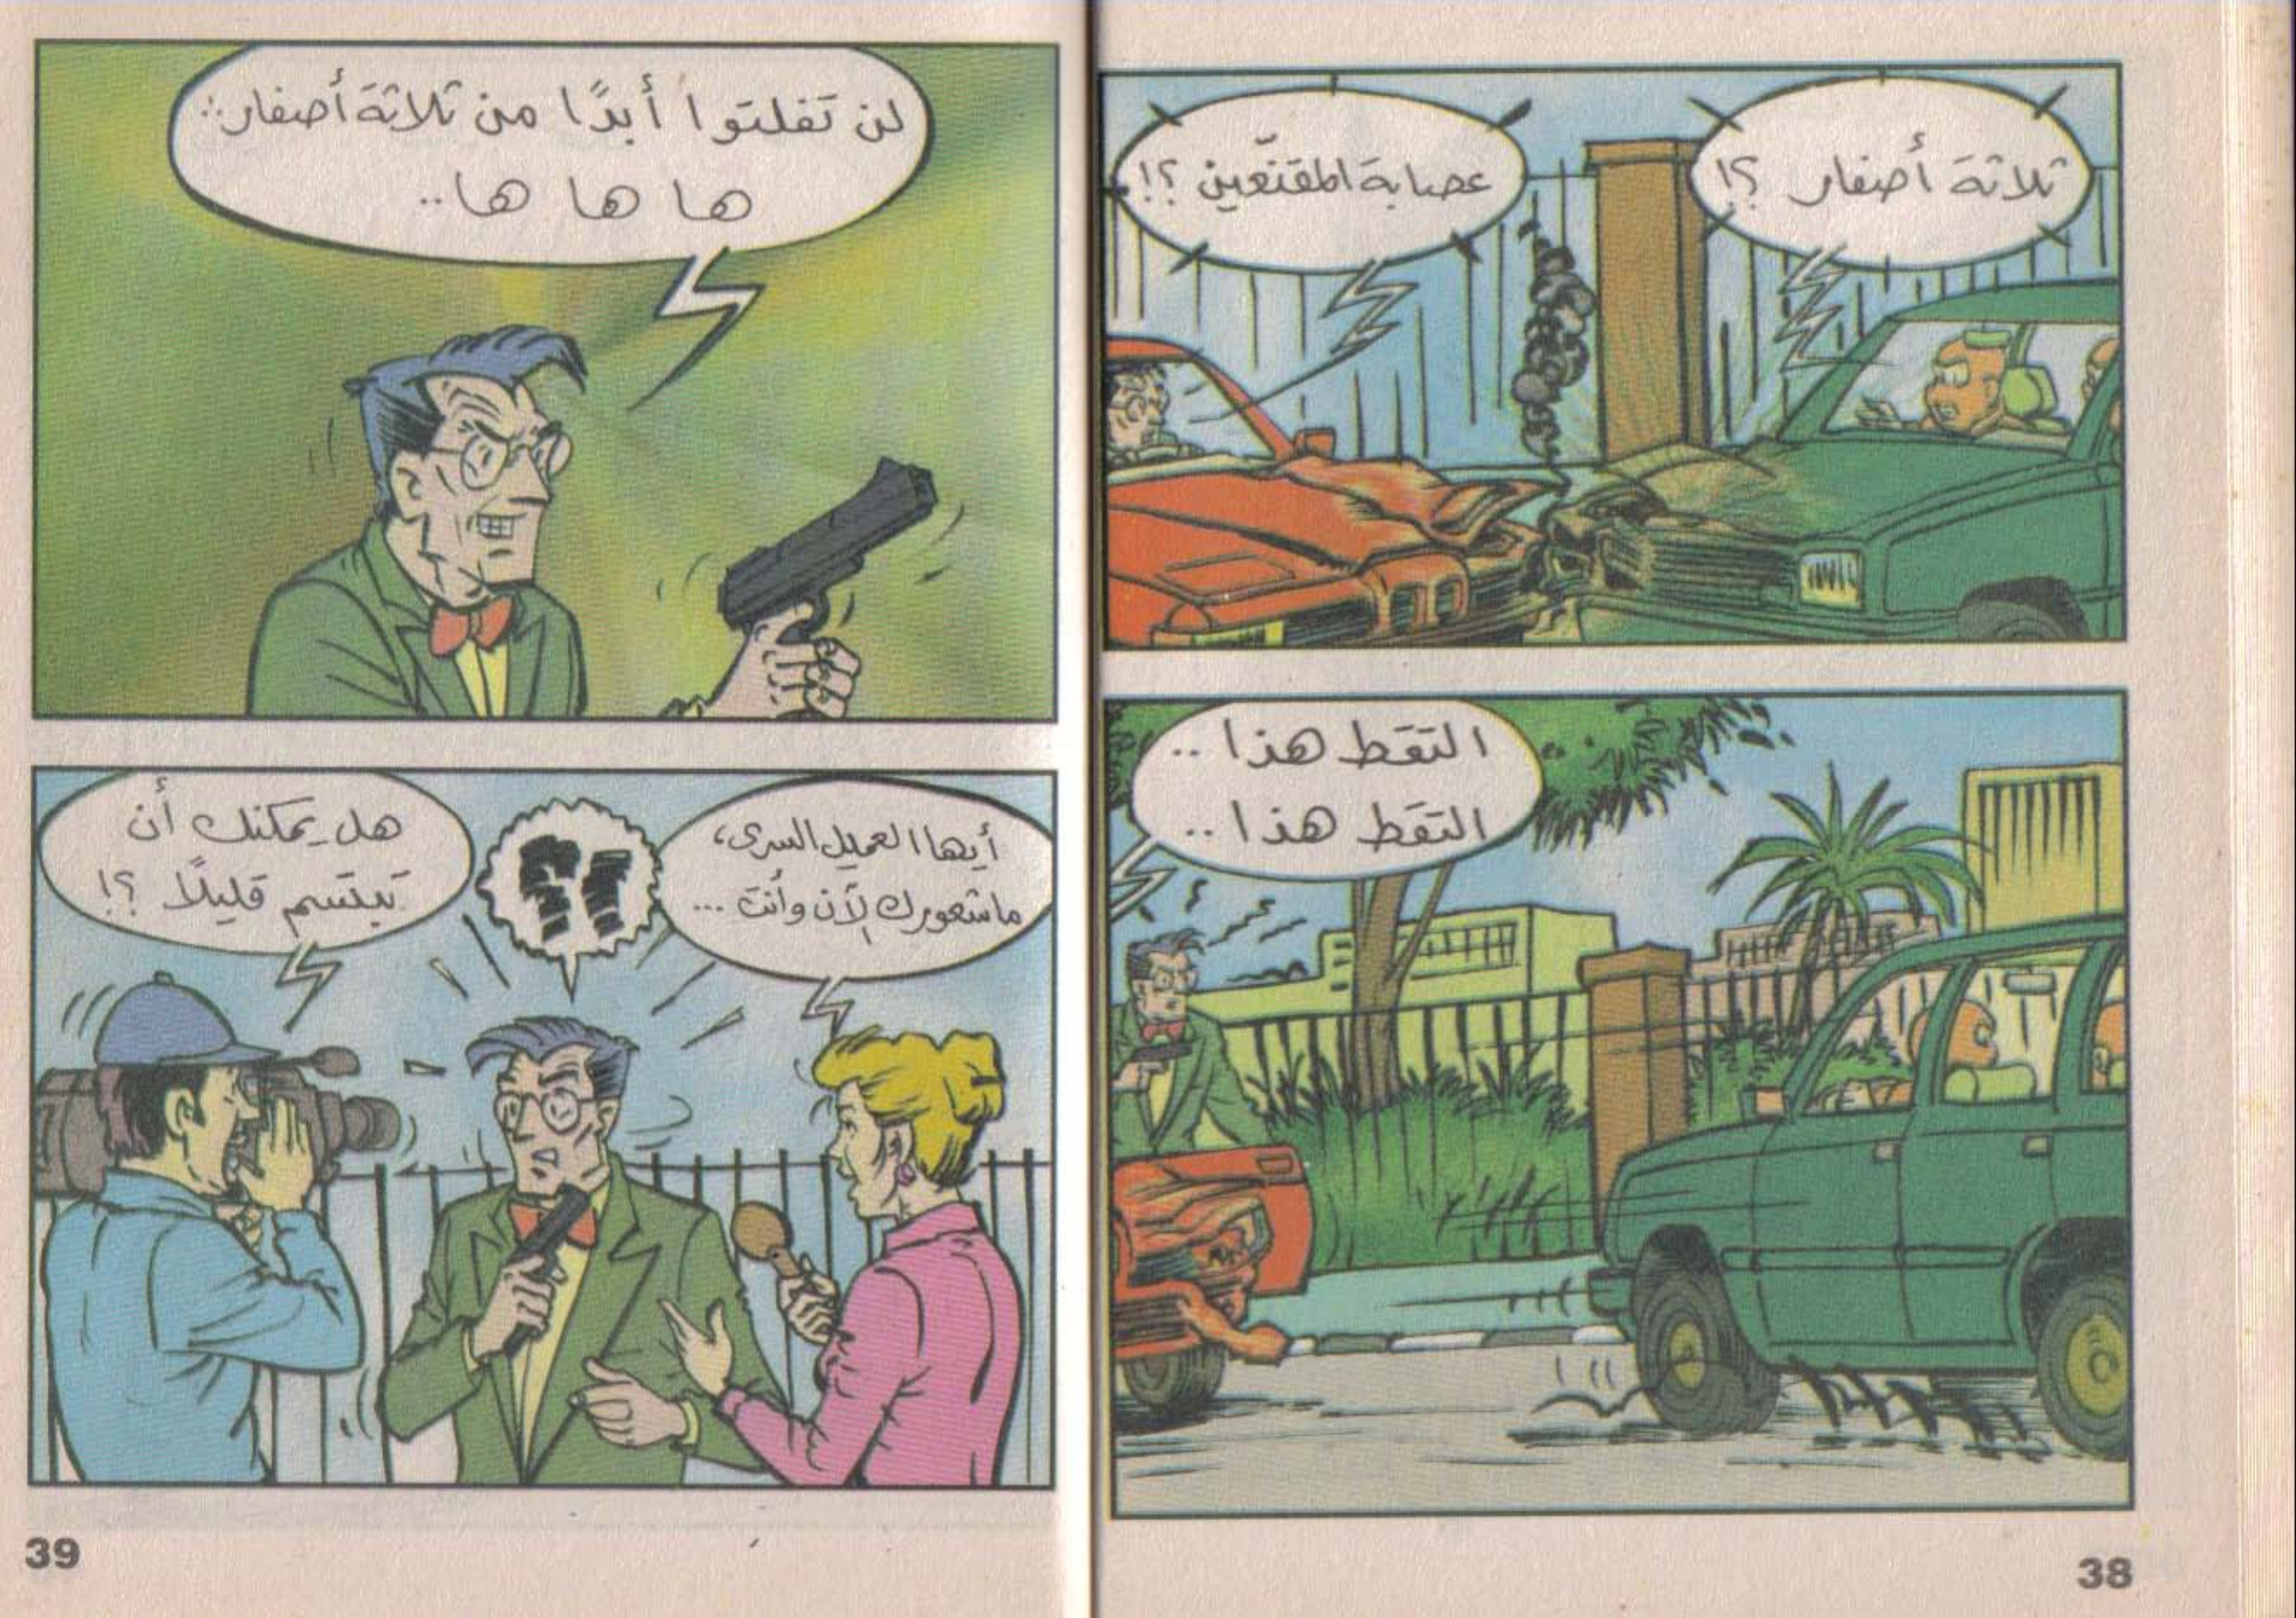 ثلاثة أصفار ؟!
عصابة المقنّعين ؟!
التقط هذا ..
التقط هذا ..
38
لن تفلتوا أبدًا من ثلاثة أصفار..
ها ها ها..
أيها العميل السرى،
ما شعورك الآن وأنت ...
؟!
هل يمكنك أن
تبتسم قليلًا ؟!
39